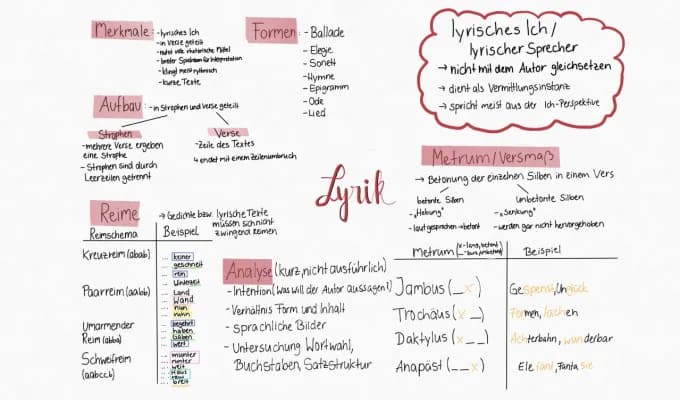 Merkmale: -lyrisches Ich
-in Verse geteilt
-nutzt viele rhetorische Mittel
-breiter Spielraum für Interpretation
-klingt meist rythmisch
-kurze Texte
Formen: -Ballade
-Elegie
-Sonett
-Hymne
-Epigramm
-Ode
-Lied
lyrisches Ich/
lyrischer Sprecher
→ nicht mit dem Autor gleichsetzen
→ dient als Vermittlungsinstanz
→ spricht meist aus der Ich-Perspektive
Aufbau: -in Strophen und Verse geteilt
Strophen
-mehrere Verse ergeben
eine Strophe
-Strophen sind durch
Leerzeilen getrennt
Verse
-Zeile des Textes
↳ endet mit einem Zeilenumbruch
Lyrik
Metrum/Versmaß
→ Betonung der einzelnen Silben in einem Vers
betonte Silben
-„Hebung"
-laut gesprochen → betont
unbetonte Silben
-„Senkung"
-werden gar nicht hervorgehoben
Reime
→ Gedichte bzw. lyrische Texte
müssen sich nicht
zwingend reimen
Reimschema Beispiel
Kreuzreim (abab) ... keiner
... gescheit
... rein
Paarreim (aabb) ... Land
... Wand
... nun
... ruhn
Umarmender
Reim (abba)
... begehrt
... haben
... wert
Schweifreim
(aabccb)
... munter
... runter
... weit
... Haus
... breit
Analyse (kurz, nicht ausführlich)
-Intention (Was will der Autor aussagen?)
-Verhältnis Form und Inhalt
-sprachliche Bilder
-Untersuchung Wortwahl,
Buchstaben, Satzstruktur
Metrum Beispiel
Jambus (_x) Gespenst, Unglück
Trochäus (x_) Formen, lachen
Daktylus (x__) Achterbahn, wunderbar
Anapäst (__x) Elefant, Fantasie